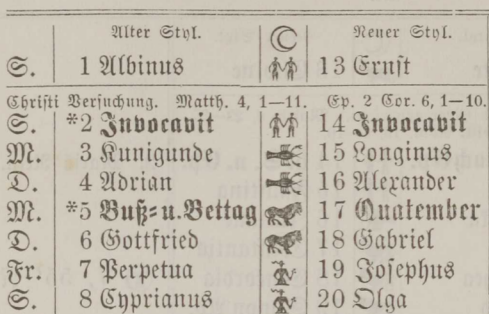 Alter Styl. Neuer Styl.
S. 1 Albinus 13 Ernst
Christi Versuchung. Matth. 4, 1—11. Ep. 2 Cor. 6, 1—10.
S. *2 Invocavit 14 Invocavit
M. 3 Kunigunde 15 Longinus
D. 4 Adrian 16 Alexander
M. *5 Buß- u. Bettag 17 Quatember
D. 6 Gottfried 18 Gabriel
Fr. 7 Perpetua 19 Josephus
S. 8 Cyprianus 20 Olga